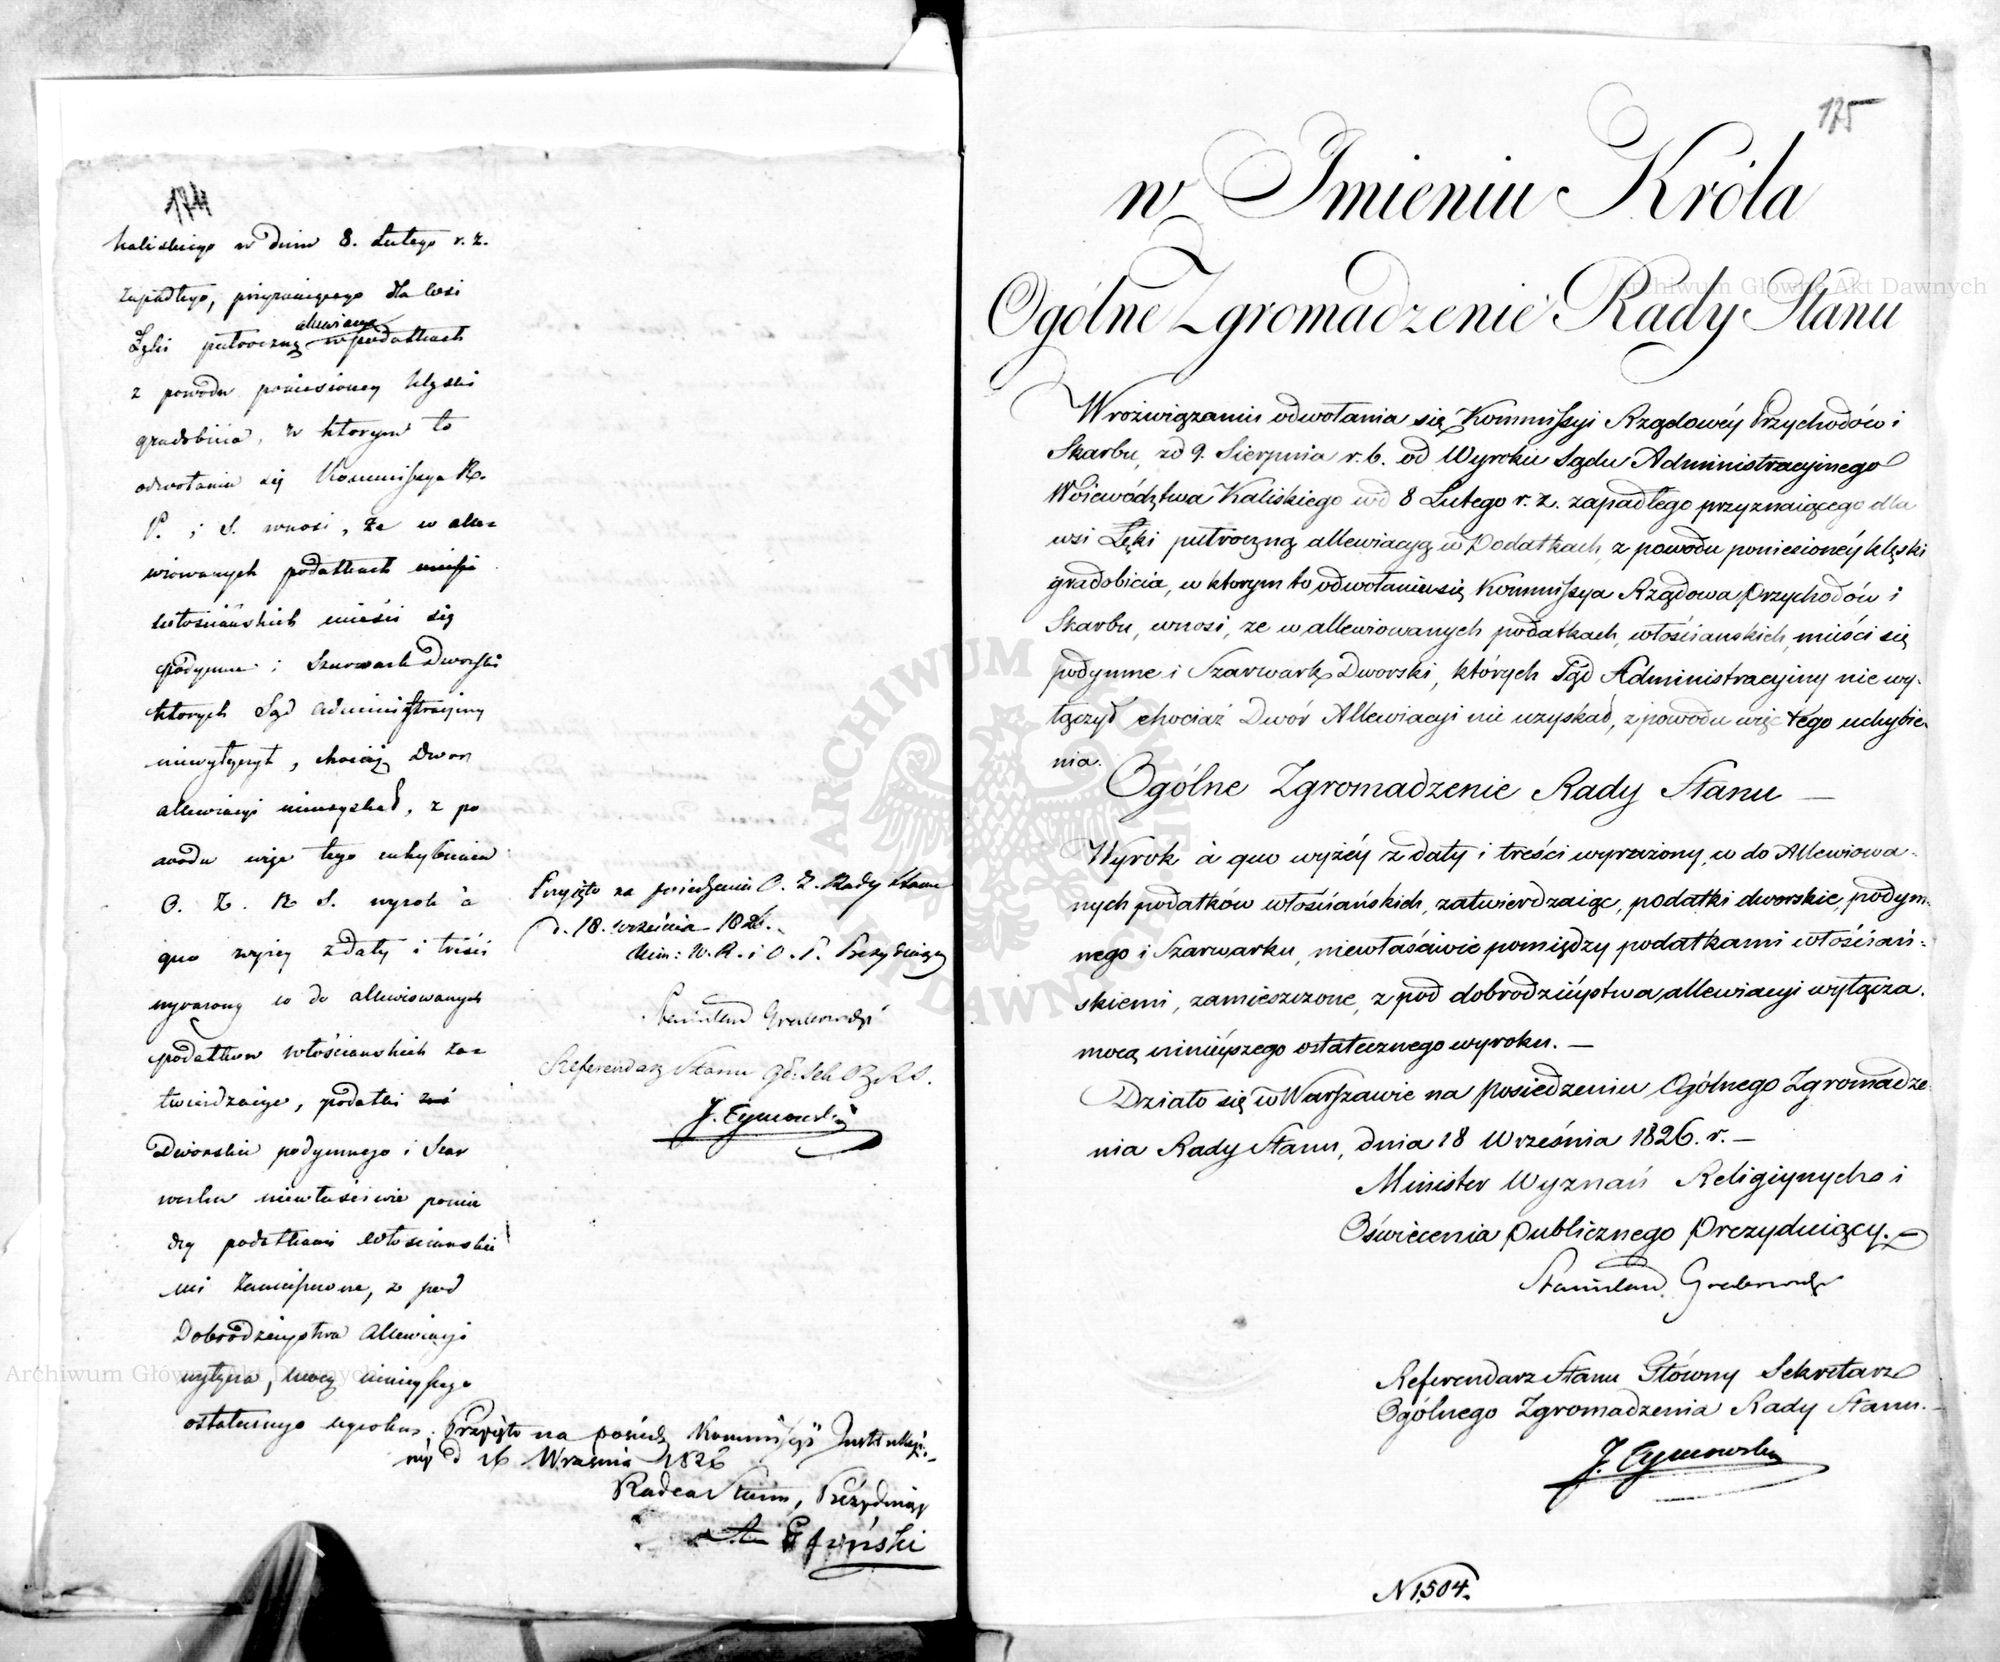 174
kaliskiego w dniu 8. Lutego r. z.
zapadłego, przyznaiącego dla wsi
allewiacyą
Łęki putroczną w podatkach
z powodu poniesioney klęski
gradobicia, w ktorym to
odwołaniu się Kommissya R.
P. i S. wnosi, że w alle-
wiowanych podatkach
włościańskich mieści się
podymne i Szarwark Dworski
ktorych Sąd Administracyiny
niewyłączył, chociaż Dwor
allewiacyi nieuzyskał, z po
wodu więc tego uchybienia
O. Z. R. S. wyrok à
quo wyżey z daty i treści
wyrażony co do allewiowanych
podatkow włościańskich za-
twierdzaiąc, podatki
Dworskie podymnego i Szar
warku niewłaściwie pomię
dzy podatkami włościańskie
mi zamieszczone, z pod
Dobrodzieystwa allewiacyi
wyłącza, mocą ninieyszego
ostatecznego wyroku.
Przyięto na posiedz Kommissyi Instrukcyi-
ney d 16 Września 1826
Radca Stanu, Prezyduiący
Przyięto na posiedzeniu O. Z. Rady Stanu
d. 18. września 1826.
Min: W. R. i O. P. Prezyduiący
Stanisław Grabowski
Referendarz Stanu Gł. Sek. O. Z. R. S.
J. Tymowski
175
w Imieniu Króla
Ogólne Zgromadzenie Rady Stanu
W rozwiązaniu odwołania się Kommissyi Rządowéy Przychodów i
Skarbu, zd 9. Sierpnia r. b. od Wyroku Sądu Administracyinego
Woiewództwa Kaliskiego wd 8 Lutego r. z. zapadłego przyznaiącego dla
wsi Łęki putroczną allewiacyą w Podatkach, z powodu poniesionéy klęski
gradobicia, w ktorym to odwołaniu się Kommissya Rządowa Przychodów i
Skarbu, wnosi, ze w allewiowanych podatkach, włościanskich, mieści się
podymne i Szarwark Dworski, których Sąd Administracyiny nie wy-
łączył chociaż Dwór Allewiacyi nie uzyskał, z powodu więc tego uchybie-
nia.
Ogólne Zgromadzenie Rady Stanu —
Wyrok à quo wyżéy z daty i treści wyrażony, co do Allewiowa-
nych podatków włościańskich, zatwierdzaiąc, podatki dworskie, podym-
nego i Szarwarku, niewłaściwie pomiędzy podatkami włościań-
skiemi, zamieszczone, z pod dobrodzieystwa allewiacyi wyłącza.
mocą ninieyszego ostatecznego wyroku. —
Działo się w Warszawie na posiedzeniu Ogólnego Zgromadze-
nia Rady Stanu, dnia 18 Września 1826. r. —
Minister Wyznań Religiynych i
Oświecenia Publicznego Prezyduiący.
Stanisław Grabowski
Referendarz Stanu Główny Sekretarz
Ogólnego Zgromadzenia Rady Stanu.
J. Tymowski
N 1504.
Archiwum Główne Akt Dawnych
Archiwum Główne Akt Dawnych
ARCHIWUM GŁÓWNE AKT DAWNYCH